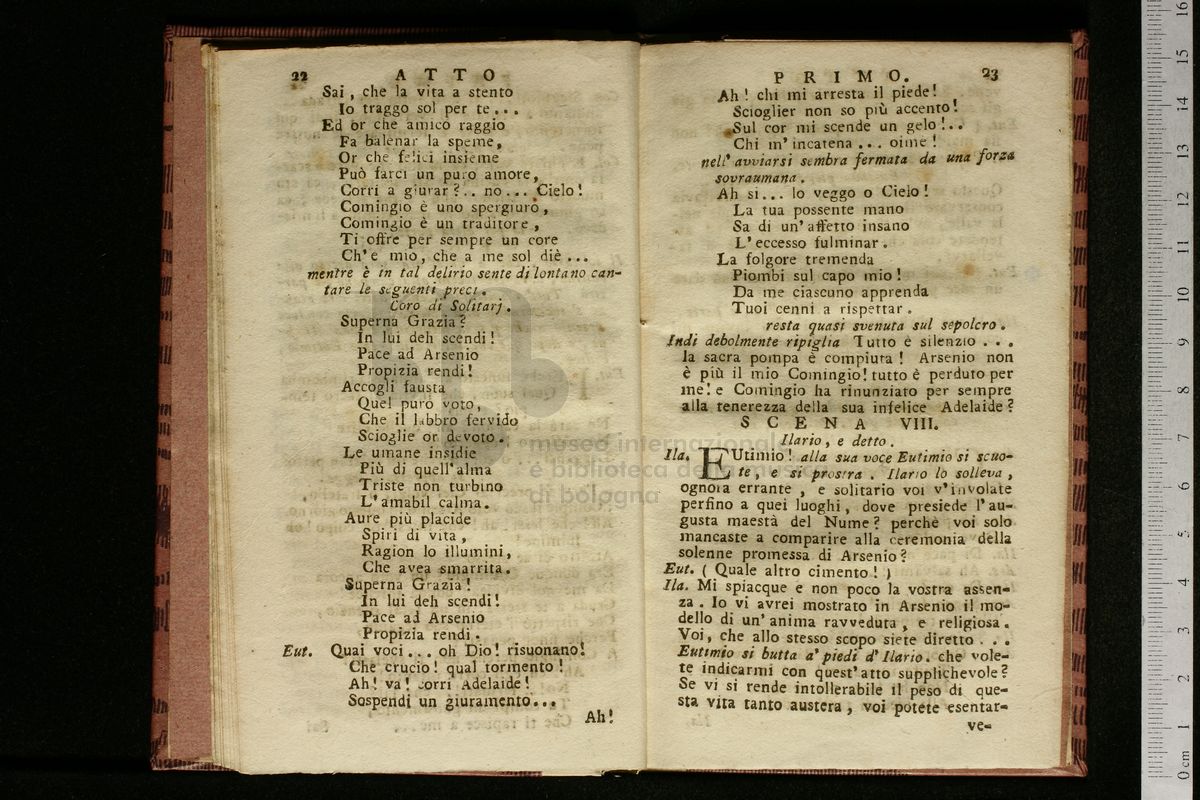 22 ATTO
Sai, che la vita a stento
Io traggo sol per te...
Ed or che amico raggio
Fa balenar la speme,
Or che felici insieme
Può farci un puro amore,
Corri a giurar?.. no... Cielo!
Comingio è uno spergiuro,
Comingio è un traditore,
Ti offre per sempre un core
Ch'e mio, che a me sol diè ...
mentre è in tal delirio sente di lontano can-
tare le seguenti preci.
Coro di Solitarj.
Superna Grazia?
In lui deh scendi!
Pace ad Arsenio
Propizia rendi!
Accogli fausta
Quel puro voto,
Che il labbro fervido
Scioglie or devoto.
Le umane insidie
Più di quell'alma
Triste non turbino
L'amabil calma.
Aure più placide
Spiri di vita,
Ragion lo illumini,
Che avea smarrita.
Superna Grazia!
In lui deh scendi!
Pace ad Arsenio
Propizia rendi.
Eut. Quai voci... oh Dio! risuonano!
Che crucio! qual tormento!
Ah! va! corri Adelaide!
Sospendi un giuramento...
Ah!
PRIMO. 23
Ah! chi mi arresta il piede!
Scioglier non so più accento!
Sul cor mi scende un gelo!..
Chi m'incatena ... oime!
nell' avviarsi sembra fermata da una forza
sovraumana.
Ah si... lo veggo o Cielo!
La tua possente mano
Sa di un'affetto insano
L'eccesso fulminar.
La folgore tremenda
Piombi sul capo mio!
Da me ciascuno apprenda
Tuoi cenni a rispettar.
resta quasi svenuta sul sepolcro.
Indi debolmente ripiglia Tutto è silenzio ...
la sacra pompa è compiuta! Arsenio non
è più il mio Comingio! tutto è perduto per
me! e Comingio ha rinunziato per sempre
alla tenerezza della sua infelice Adelaide?
SCENA VIII.
Ilario, e detto.
Ila. EUtimio! alla sua voce Eutimio si scuo-
te, e si prostra. Ilario lo solleva,
ognora errante, e solitario voi v'involate
perfino a quei luoghi, dove presiede l'au-
gusta maestà del Nume? perchè voi solo
mancaste a comparire alla ceremonia della
solenne promessa di Arsenio?
Eut. (Quale altro cimento!)
Ila. Mi spiacque e non poco la vostra assen-
za. Io vi avrei mostrato in Arsenio il mo-
dello di un'anima ravveduta, e religiosa.
Voi, che allo stesso scopo siete diretto ...
Eutimio si butta a' piedi d'Ilario. che vole-
te indicarmi con quest'atto supplichevole?
Se vi si rende intollerabile il peso di que-
sta vita tanto austera, voi potete esentar-
ve-
museo internazionale
e biblioteca della musica
di bologna
0 cm 1 2 3 4 5 6 7 8 9 10 11 12 13 14 15 16